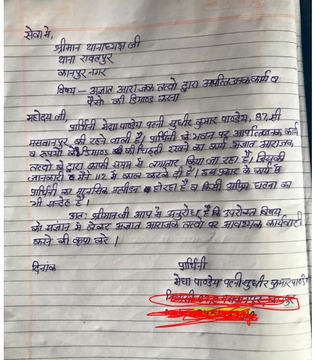 सेवा में,
श्रीमान थानाध्यक्ष जी
थाना रावतपुर
कानपुर नगर
विषय - अज्ञात अराजक तत्वो द्वारा आपत्तिजनक कार्य व
पैसे की डिमाण्ड करना
महोदय जी,
प्रार्थिनी मेघा पाण्डेय पत्नी सुधीर कुमार पाण्डेय, 87 सी
मसवानपुर की रहने वाली है। प्रार्थिनी के भवन पर आपत्तिजनक कार्य
व रुपयो की डिमाण्ड की चिट्ठी रखने का कार्य अज्ञात अराजक
तत्वो के द्वारा काफी समय से लगातार किया जा रहा है। जिसकी
जानकारी मैने 112 में काल करके दी है। इस प्रकार के कार्य से
प्रार्थिनी का मानसिक उत्पीडन हो रहा है व किसी अप्रिय घटना का
भी अन्देह है।
अतः श्रीमान जी आप से अनुरोध है कि उपरोक्त विषय
को संज्ञान में लेकर अज्ञात अराजक तत्वो पर आवश्यक कार्यवाही
करने की कृपा करे।
दिनांक
प्रार्थिनी
मेघा पाण्डेय पत्नी सुधीर कुमार पाण्डेय